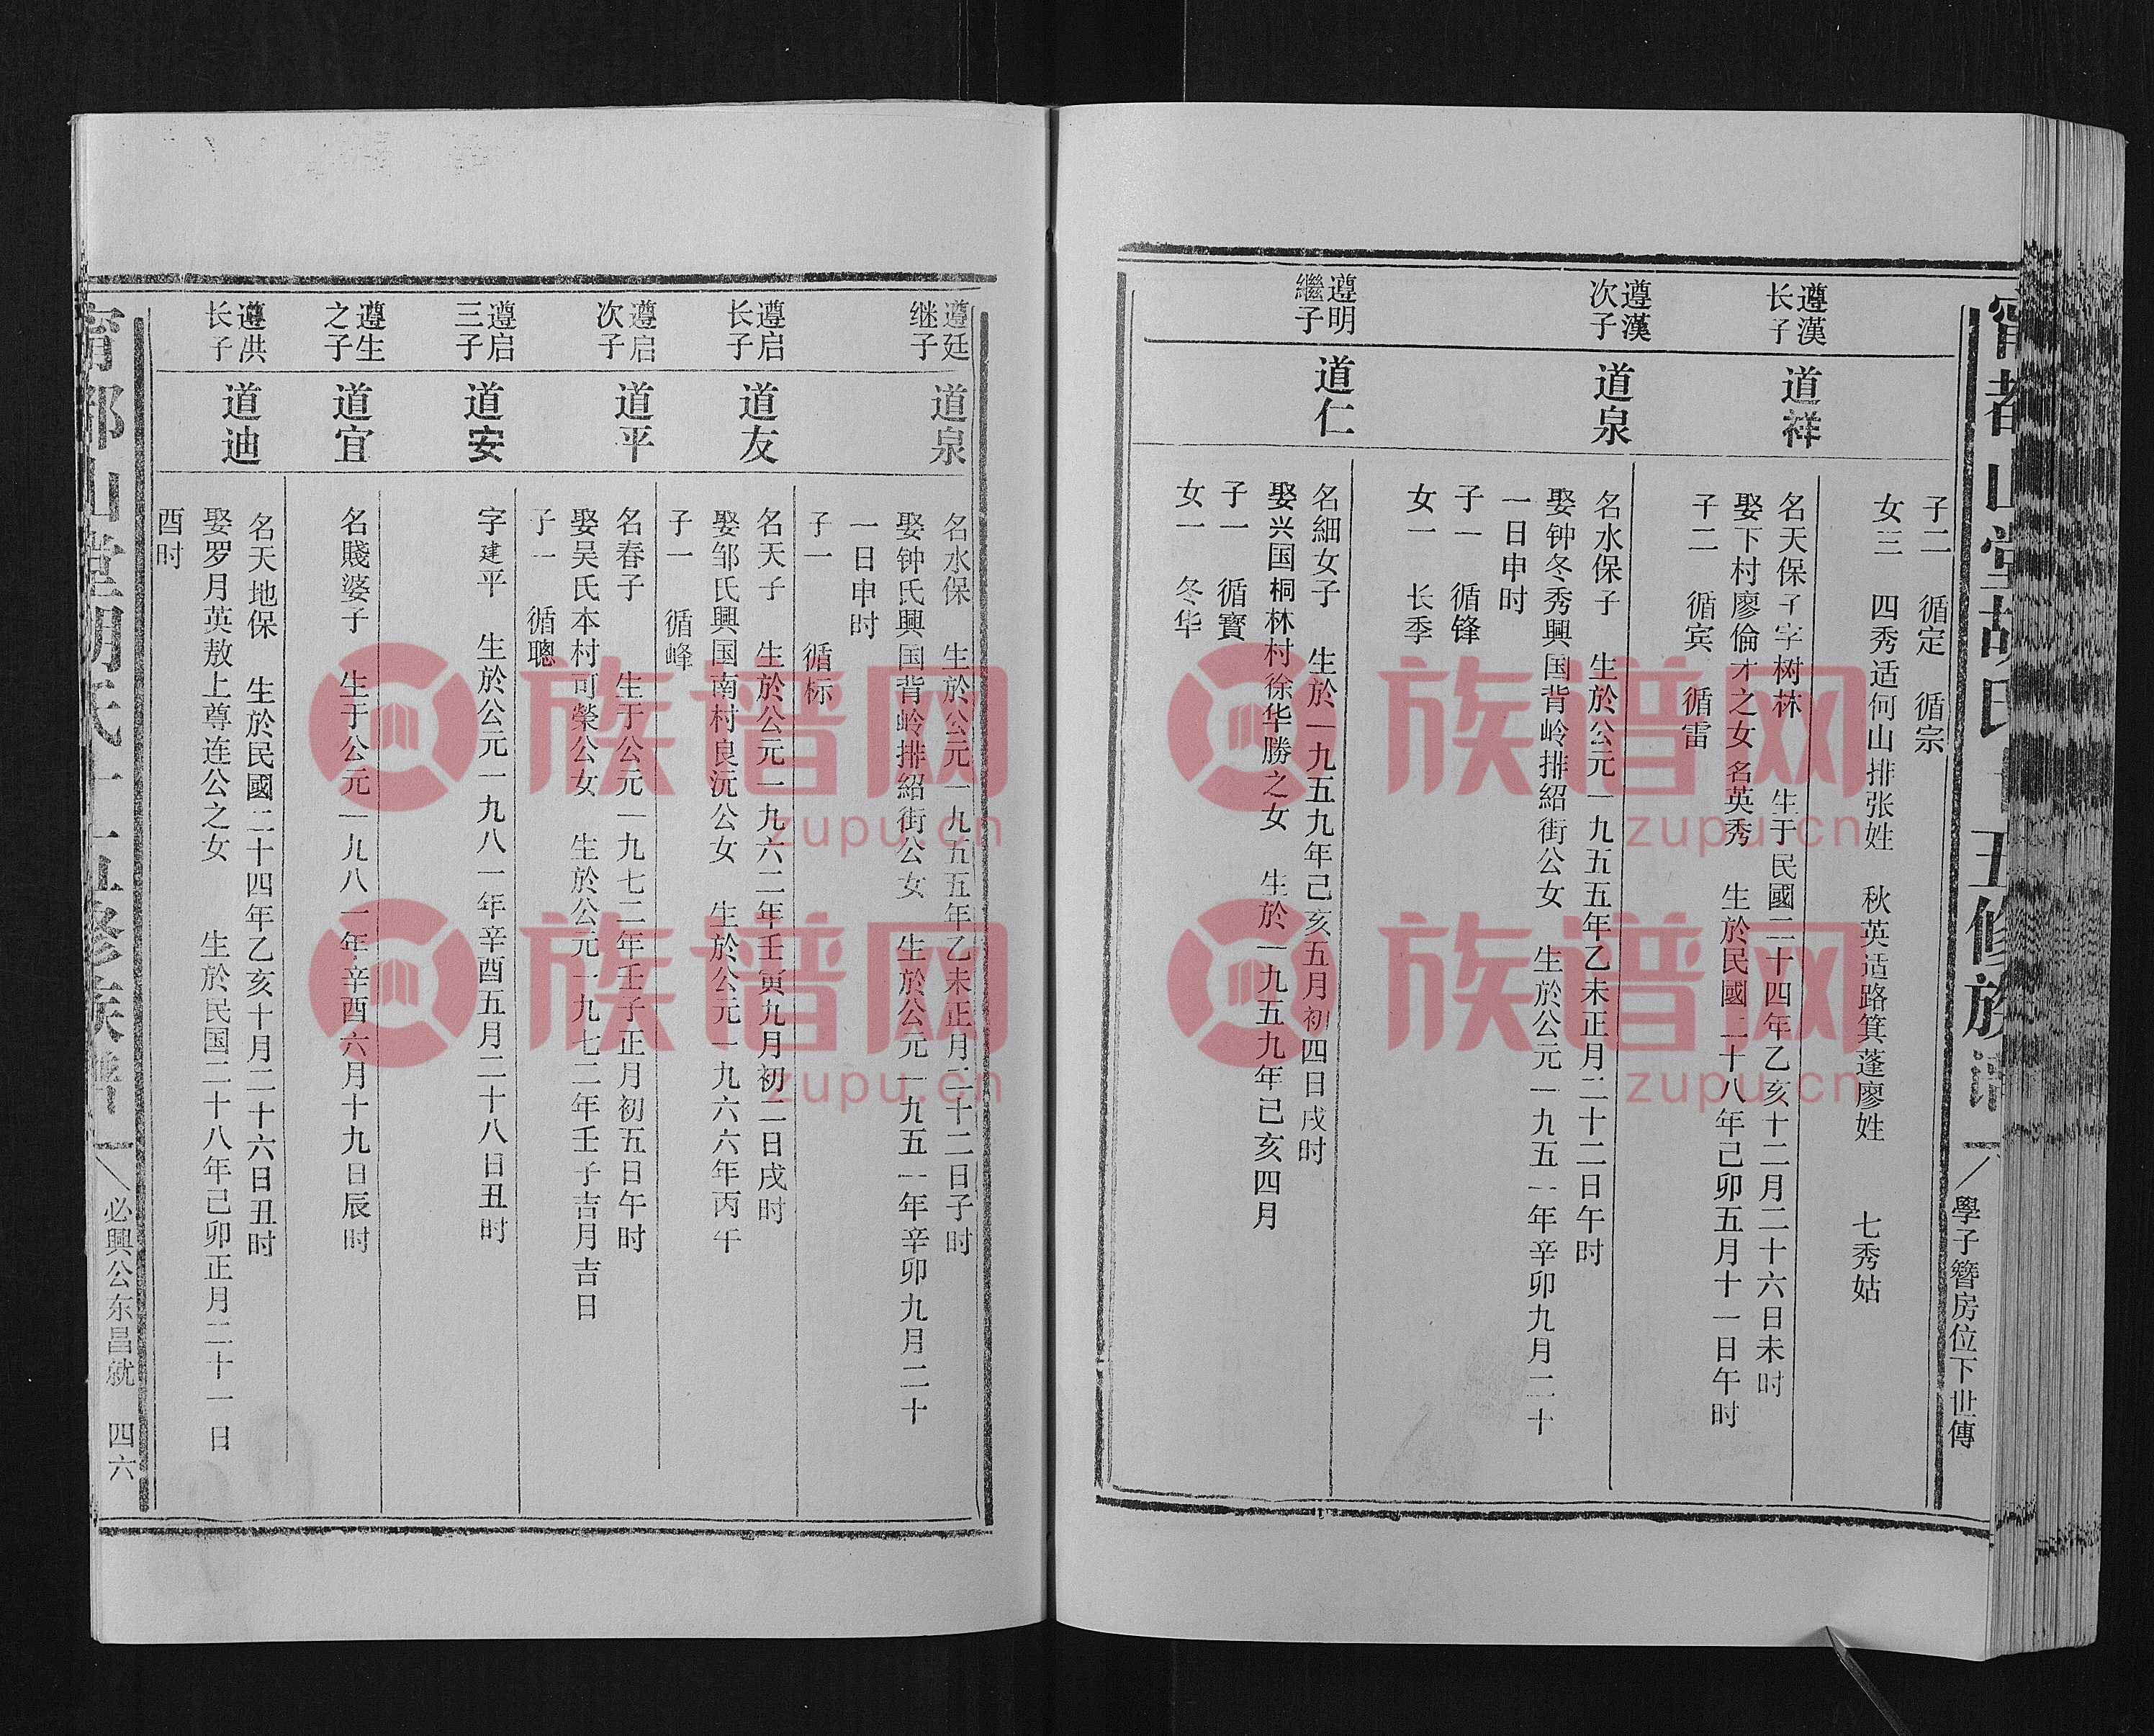 甯都山堂胡氏十五修族譜
學子簪房位下世傳
子二 循定 循宗
女三 四秀适何山排张姓 秋英适路箕蓬廖姓 七秀姑
遵漢
长子
道祥
名天保子字树林 生于民國二十四年乙亥十二月二十六日未时
娶下村廖倫才之女名英秀 生於民國二十八年己卯五月十一日午时
子二 循宾 循雷
遵漢
次子
道泉
名水保子 生於公元一九五五年乙未正月二十二日午时
娶钟冬秀興国背岭排紹街公女 生於公元一九五一年辛卯九月二十
一日申时
子一 循锋
女一 长季
遵明
繼子
道仁
名細女子 生於一九五九年己亥五月初四日戌时
娶兴国桐林村徐华勝之女 生於一九五九年己亥四月
子一 循寳
女一 冬华
遵廷
继子
道泉
名水保 生於公元一九五五年乙未正月二十二日子时
娶钟氏興国背岭排紹街公女 生於公元一九五一年辛卯九月二十
一日申时
子一 循标
遵启
长子
道友
名天子 生於公元一九六二年壬寅九月初二日戌时
娶邹氏興国南村良沅公女 生於公元一九六六年丙午
子一 循峰
遵启
次子
道平
名春子 生于公元一九七二年壬子正月初五日午时
娶吴氏本村可榮公女 生於公元一九七二年壬子吉月吉日
子一 循聰
遵启
三子
道安
字建平 生於公元一九八一年辛酉五月二十八日丑时
遵生
之子
道宜
名賤婆子 生于公元一九八一年辛酉六月十九日辰时
遵洪
长子
道迪
名天地保 生於民國二十四年乙亥十月二十六日丑时
娶罗月英敖上尊连公之女 生於民国二十八年己卯正月二十一日
酉时
甯都山堂胡氏十五修族譜
必興公东昌就 四六
族谱网
zupu.cn
族谱网
zupu.cn
族谱网
zupu.cn
族谱网
zupu.cn